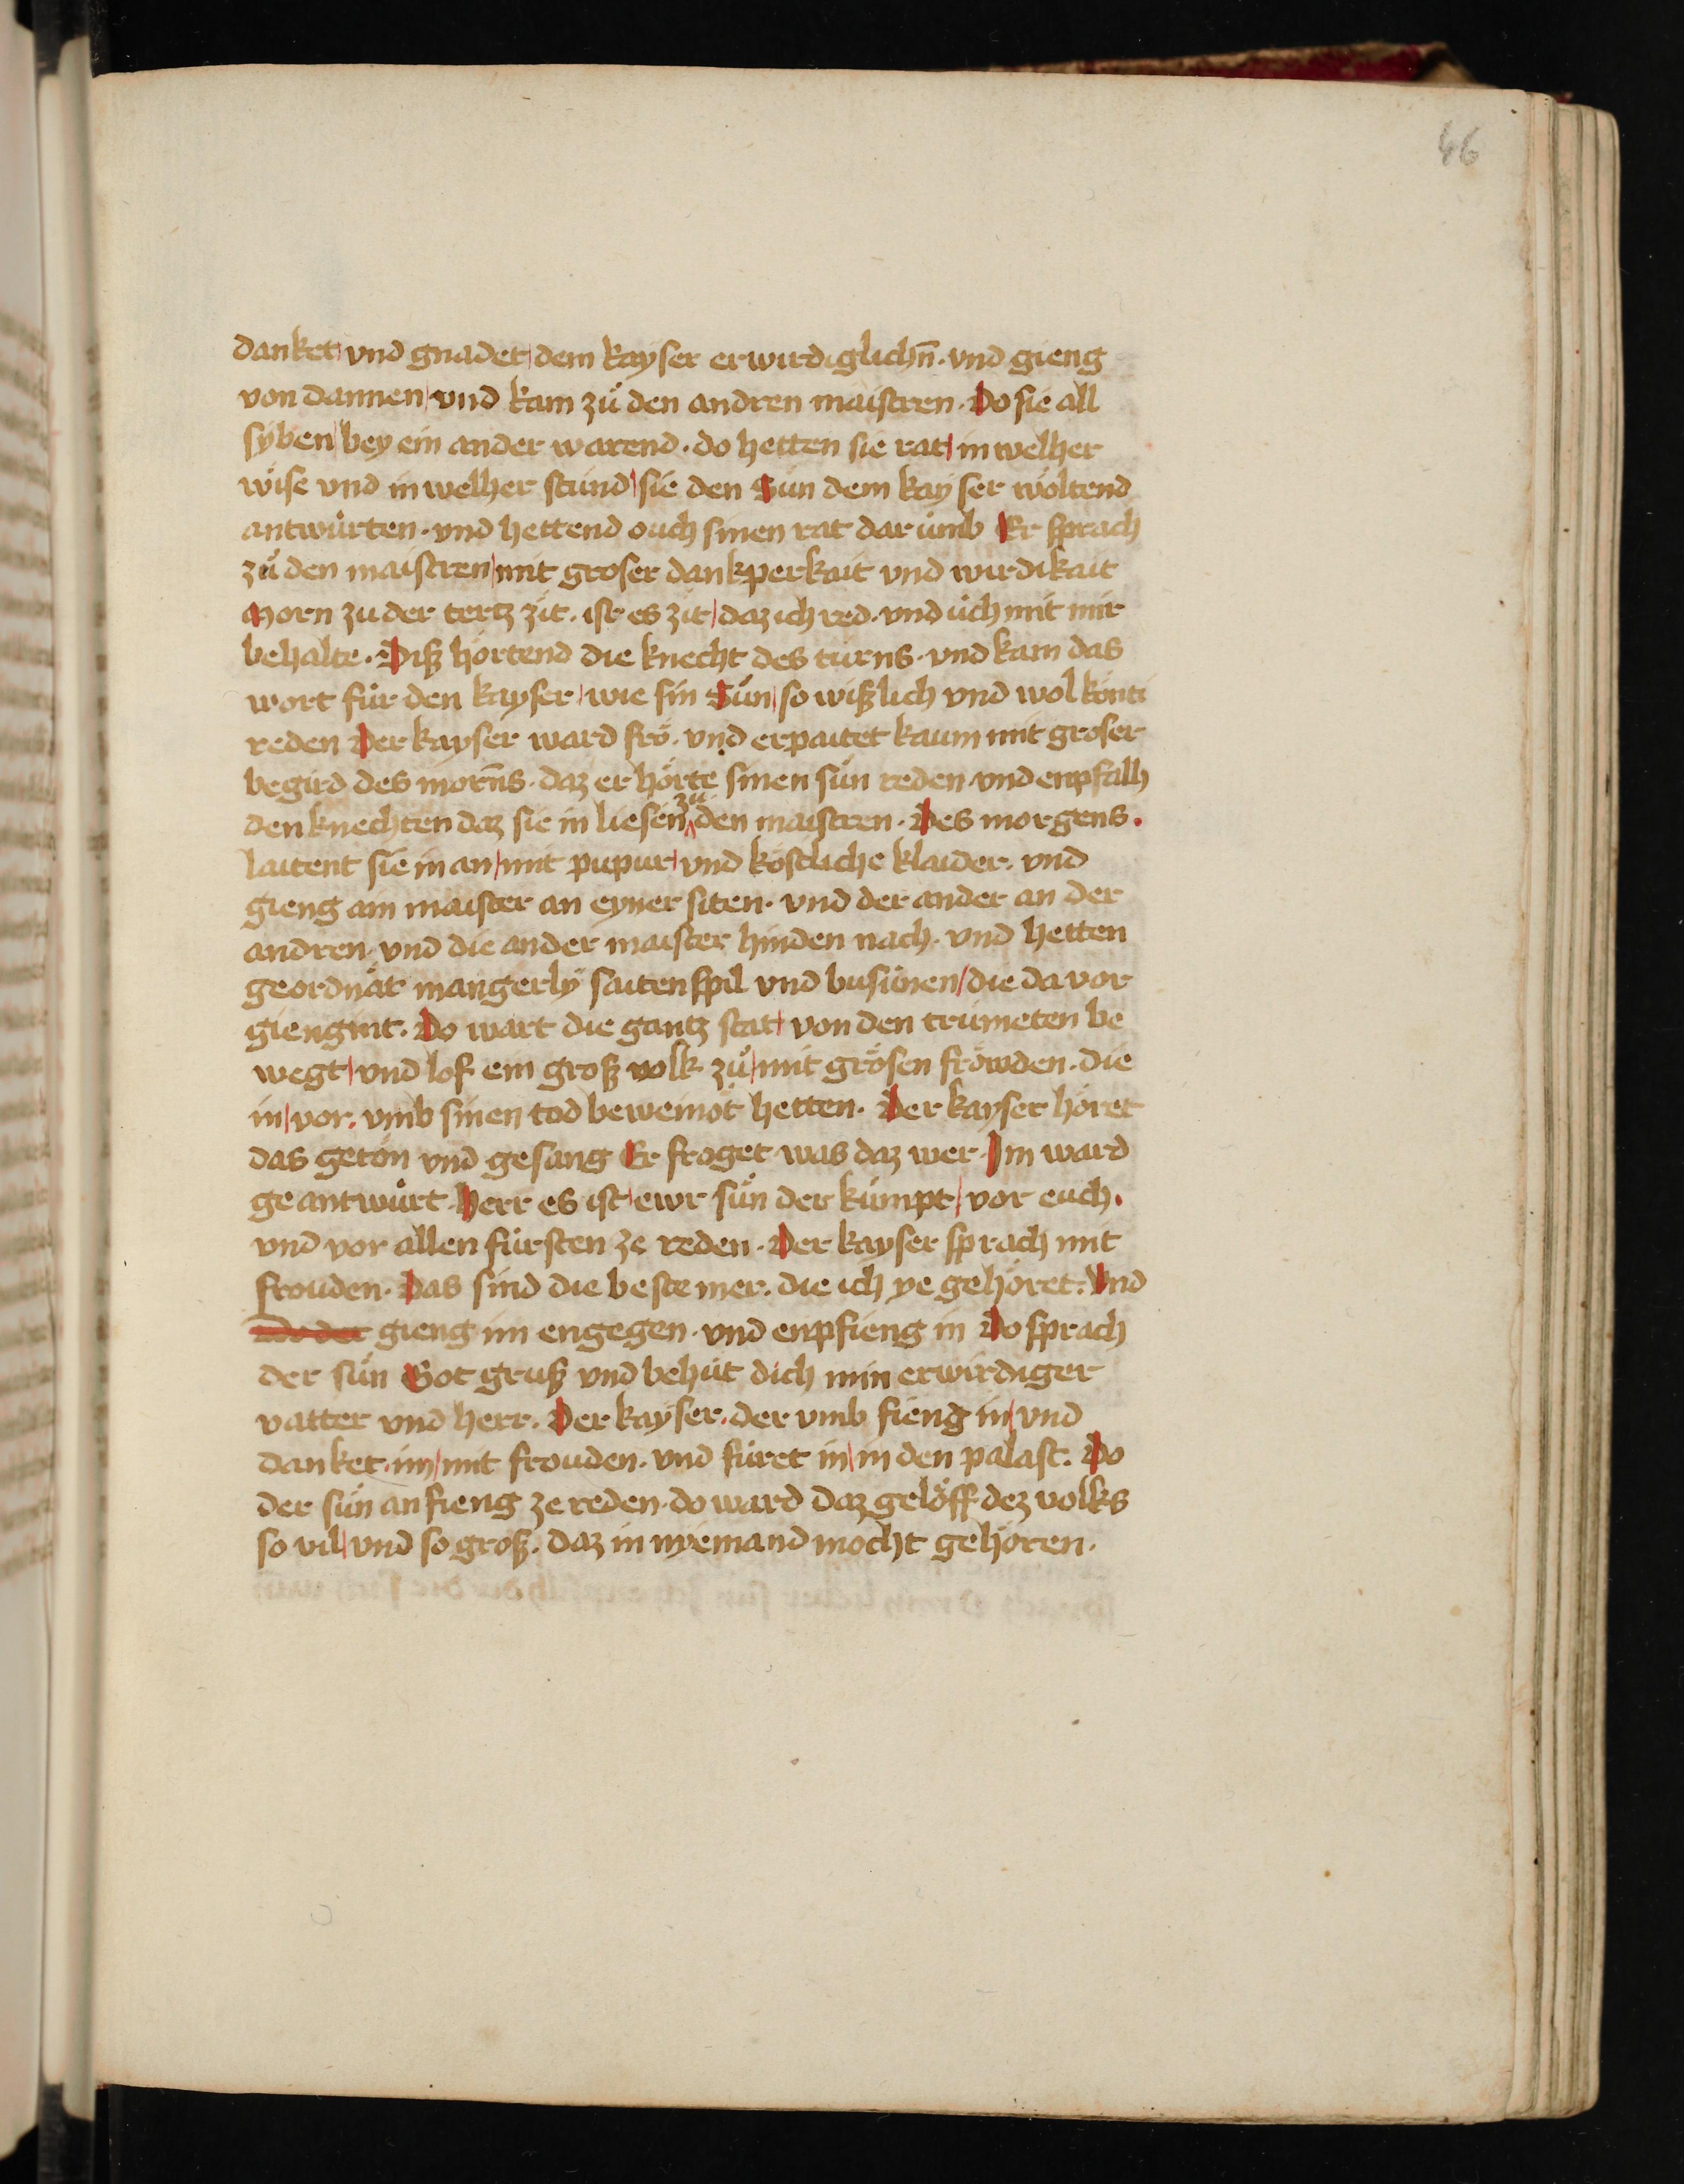 46
danket vnd gnadet dem kayser erwirdiglichn̄. vnd gieng
von dannen vnd kam zů den andren maistren. Do sie all
syben bey ein ander warend. do hetten sie rat in welher
wise vnd in welher stund sie den Sun dem kayser wöltend
antwürten. vnd hettend ouch sinen rat dar umb Er sprach
zů den maistren mit groser dankperkait vnd wirdikait
Morn zu der tertz zit. ist es zit daz ich red. vnd üch mit mir
behalte. Diß hortend die knecht des turns. vnd kam das
wort für den kayser wie sin Sun so wißlich vnd wol könti
reden Der kayser ward frö. vnd erpaitet kaum mit groser
begird des morn̄s. daz er hörte sinen sun reden vnd enpfalh
den knechten daz sie in liesen zu den maistren. Des morgens.
laitent sie in an mit pupur vnd köstliche klaider. vnd
gieng ain maister an eyner siten. vnd der ander an der
andren. vnd die ander maister hinden nach. vnd hetten
geordnät mangerly saitenspil vnd busunen die da vor
giengint. Do wart die gantz stat von den trumeten be
wegt vnd lof ein groß volk zů mit grösen fröwden. die
in vor. vmb sinen tod beweinot hetten. Der kayser höret
das getön vnd gesang Er froget was daz wer. Im ward
ge antwürt. Herr es ist ewr sun der kumpt vor euch.
vnd vor allen fürsten ze reden. Der kayser sprach mit
frouden. Das sind die beste mer. die ich ye gehöret. Vnd
gieng im engegen. vnd enpfieng in Do sprach
der sun Got gruß vnd behüt dich min erwirdiger
vatter vnd herr. Der kayser. der vmb fieng in vnd
danket. im mit frouden. vnd füret in in den palast. Do
der sun an fieng ze reden. do ward daz gelöff dez volks
so vil vnd so groß. daz in nyemand mocht gehören.